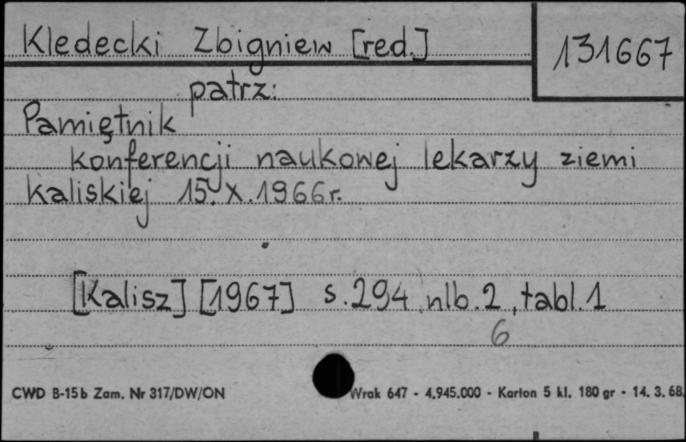 Kledecki Zbigniew [red.]
131667
patrz:
Pamiętnik
konferencji naukowej lekarzy ziemi
kaliskiej 15.X.1966r.
[Kalisz] [1967] s.294, nlb.2, tabl.1
6
CWD B-15b Zam. Nr 317/DW/ON Wrak 647 - 4.945.000 - Karton 5 kl. 180 gr - 14. 3. 68.